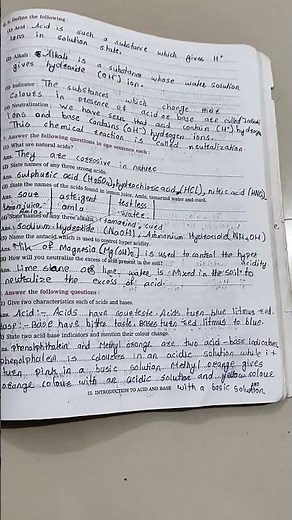 Q. 6. Define the following :
(1) Acid : Acid is such a substance which gives H+
ions in solution state.
(2) Alkali : Alkali is a substance whose water solution
gives hydroxide (OH-) ion.
(3) Indicator : The substances which change their
colours in presence of acid or base are called indi
(4) Neutralization : We have seen that acid contain (H+) hydrogen
ions and base contains (OH-) hydrogen ions.
This chemical reaction is called neutralization
Answer the following questions in one sentence each :
(1) What are natural acids?
Ans. They are corrosive in nature
(2) State names of any three strong acids.
Ans. Sulphuric acid (H2SO4), hydrochloric acid (HCl), nitric acid (HNO3)
(3) State the names of the acids found in lemon juice, Amla, tamarind water and curd.
Ans. sout astei gent testless
amla water
tamarind, curd
(4) State names of any three alkalis.
Ans. Sodium Hydroxide (NaOH), Ammonium Hydroxide (NH4OH)
(5) Name the antacid, which is used to control hyper acidity.
Ans. Milk of Magnesia (Mg(OH)2) is used to control the hyper
acidity
(6) How will you neutralize the excess of acid present in the soil?
Ans. Lime stone or lime water is mixed in the soil to
neutralize the excess of acid.
Answer the following questions :
(1) Give two characteristics each of acids and bases.
Ans. Acid :- Acids have sour taste. Acids turn blue litmus red.
base :- Base have bitter taste. Bases turn red litmus to blue.
(2) State two acid-base indicators and mention their colour change.
Ans. Phenolphthalein and Methyl orange are two acid-base indicators
phenolphalein is colourless in an acidic solution while it
turn pink in a basic solution. Methyl orange gives
orange colour with an acidic solution and yellow colour
with a basic solution
12. INTRODUCTION TO ACID AND BASE